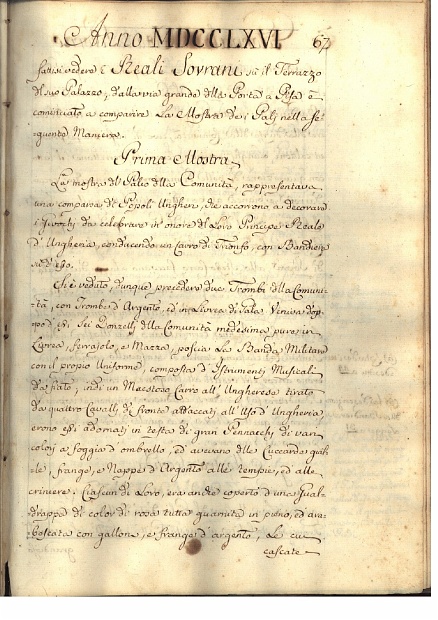 Anno MDCCLXVI 67
fattisi vedere i Reali Sovrani su il Terrazzo
del suo Palazzo, dalla via grande della Porta a Pisa è
cominciato a comparire La Mostra de i Palj nella se-
guente Maniera.
Prima Mostra
La mostra del Palio della Comunità, rappresentava
una comparsa di Popoli Ungheri, che accorrono a decorare
i Giuochi da celebrarsi in onore del Loro Principe Reale
d'Ungheria, conducendo un Carro di Trionfo, con Bandiera
su d'esso.
Si è veduto, dunque precedere due Trombi della Comuni-
tà, con Trombe d'Argento, ed in Livrea di Gala Veniva dop-
po di essi Sei Donzelli della Comunità medesima pure in
Livrea, ferrajolo, e Mazza, poscia La Banda Militare
con il propio Uniforme, composta d'Istrumenti Musicali
da fiato, indi un Maestoso Carro all'Ungherese tirato
da quattro Cavalli di fronte attaccati all'Uso d'Ungheria
erono essi adornati in testa di gran Pennacchi di vari
colori a foggia d'ombrello, ed avevano delle Cuccarde gial-
le, frange, e Nappe d'Argento alle tempie, ed alle
criniere: Ciascun di Loro, era anche coperto d'una Gual-
drappa di color di rosa tutta guarnita in puno, ed ara-
bescata con gallona, e frange d'argento, Le cui
cascate